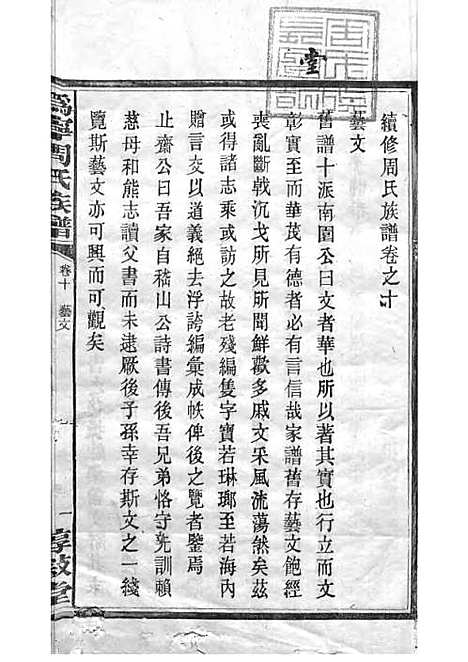 續修周氏族譜卷之十
藝文
舊譜十派南圃公曰文者華也所以著其實也行立而文
彰實至而華茂有德者必有言信哉家譜舊存藝文飽經
喪亂斷戟沉戈所見所聞鮮歡多戚文采風流蕩然矣茲
或得諸志乘或故老殘編隻字寶若琳瑯至若海內
贈言交以道義絕去浮誇編彙成帙俾後之覽者鑒焉
止齋公曰吾家自嵇山公詩書傳後吾兄弟恪守先訓賴
慈母和熊志讀父書而未逮厥後子孫幸存斯文之一綫
覽斯藝文亦可興而可觀矣
寧周氏族譜
卷十 藝文
一
敦堂
堂